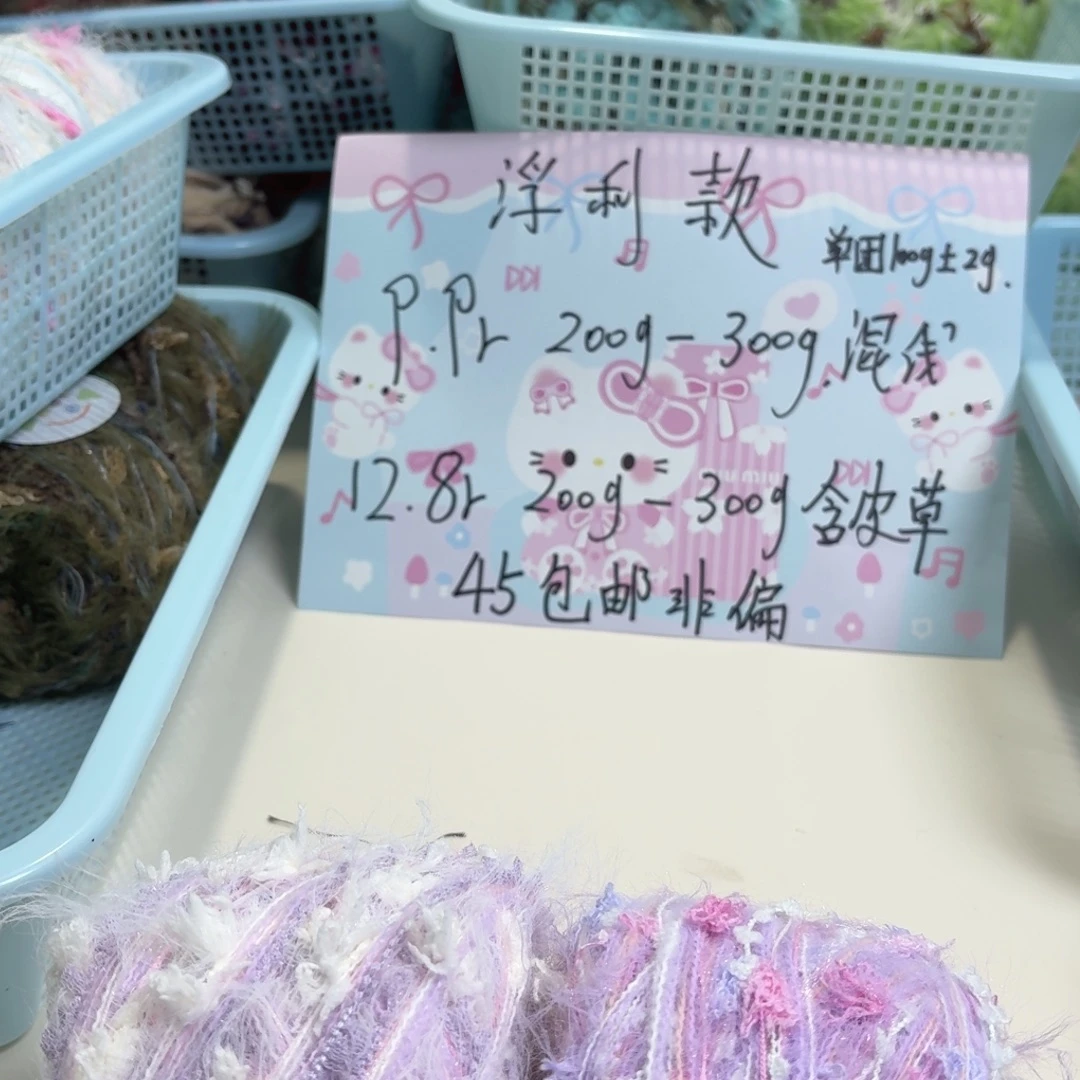 浮利款
单团100g±2g.
9.9r 200g-300g.混线
12.8r 200g-300g含皮草
45包邮非偏